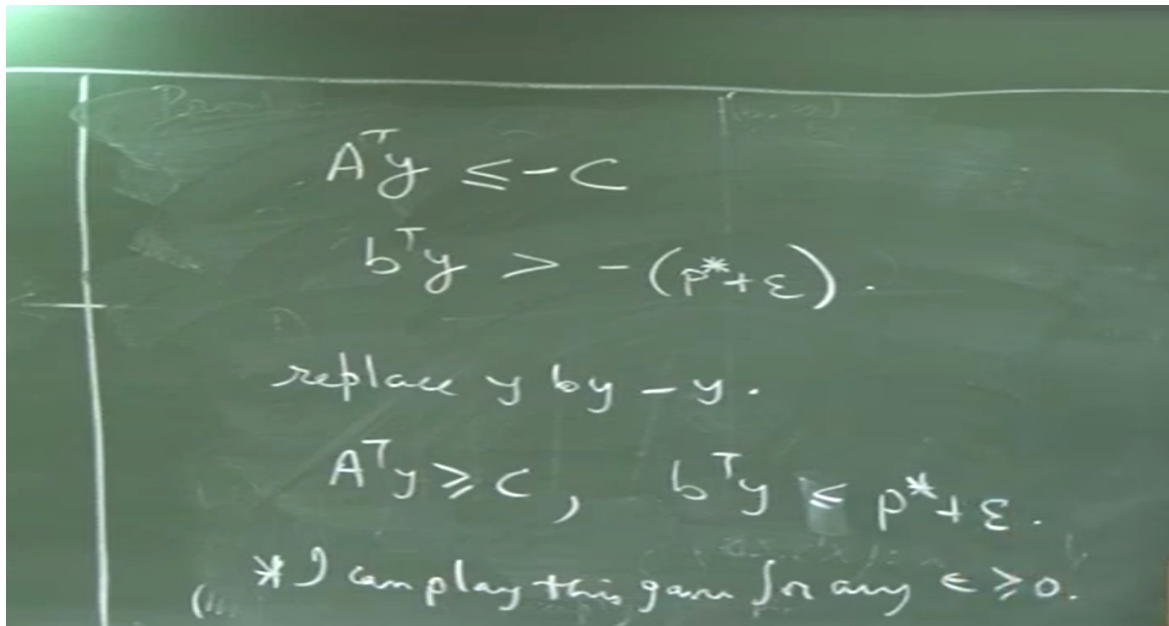 Aᵀy ≤ -C
bᵀy > -(p*+ε).
replace y by -y.
Aᵀy ≥ C, bᵀy ≤ p*+ε.
* I can play this game for any ϵ ≥ 0.